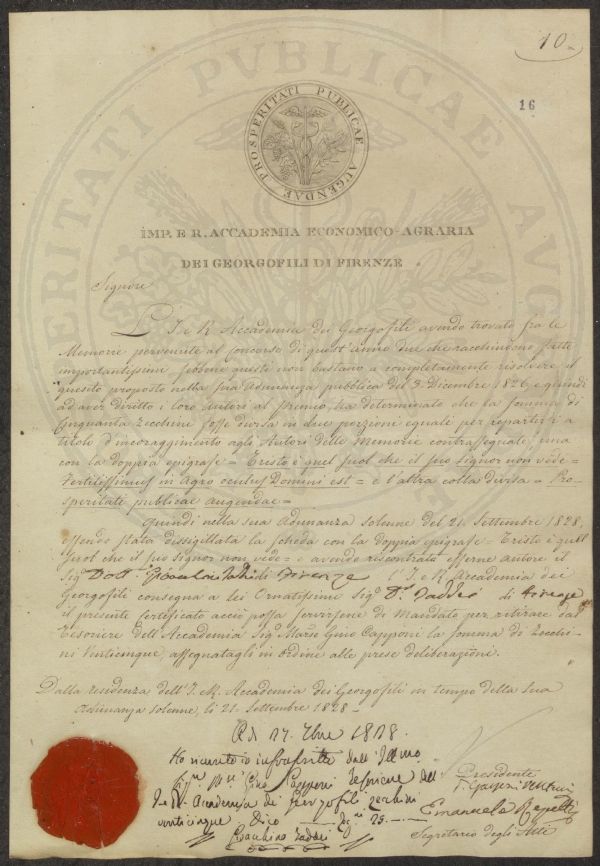 10.
16
PROSPERITATI PUBLICAE AUGENDAE
IMP. E R. ACCADEMIA ECONOMICO-AGRARIA
DEI GEORGOFILI DI FIRENZE
Signore
L'I e R Accademia dei Georgofili avendo trovato fra le
Memorie pervenute al concorso di quest'anno due che racchiudono fatti
importantissimi sebbene questi non bastano a completamente risolvere il
quesito proposto nella sua Adunanza pubblica del 3. Dicembre 1826, e quindi
ad aver diritto i loro Autori al Premio, ha determinato che la somma di
Cinquanta Zecchini fosse divisa in due porzioni eguali per repartirsi a
titolo d'incoraggimento agli Autori delle Memorie contrassegnate, una
con la doppia epigrafe = Tristo è quel suol che il suo signor non vede =
Fertilissimus in Agro oculus Domini est = e l'altra colla divisa = Pro-
speritati publicae augendae =
Quindi nella sua Adunanza solenne del 21. Settembre 1828.
essendo stata dissigillata la scheda con la doppia epigrafe = Tristo è quel
suol che il suo signor non vede = e avendo riscontrato esserne autore il
Sig. Dott. di Firenze L'I e R Accademia dei
Georgofili consegna a lei Ornatissimo Sig. D. Taddei di Firenze
il presente Certificato acciò possa servirsene di Mandato per ritirare dal
Tesoriere dell'Accademia Sig. March. Gino Capponi la somma di Zecchi-
ni Venticinque, assegnatagli in ordine alle prese deliberazioni.
Dalla residenza dell'I. R. Accademia dei Georgofili in tempo della sua
Adunanza solenne, li 21. Settembre 1828.
1828.
Ho ricevuto io infrascritto dall'Illmo
Sig. Gino Capponi Tesoriere dell'
I. e R. Accademia dei Georgofili zecchini
venticinque dico 25.
Gioacchino Taddei
Presidente
Emanuele Repetti
Segretario degli Atti